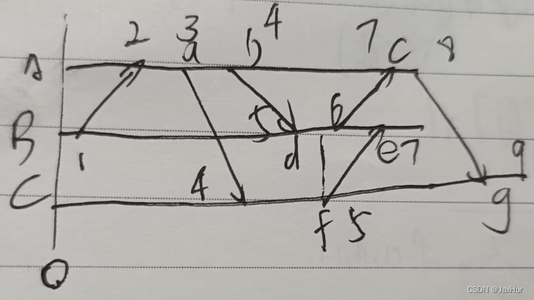 2 3 4 7 8
A a b c
5 6
B 1 d e7
C 4 f 5 g 9
0
CSDN @JaxHur